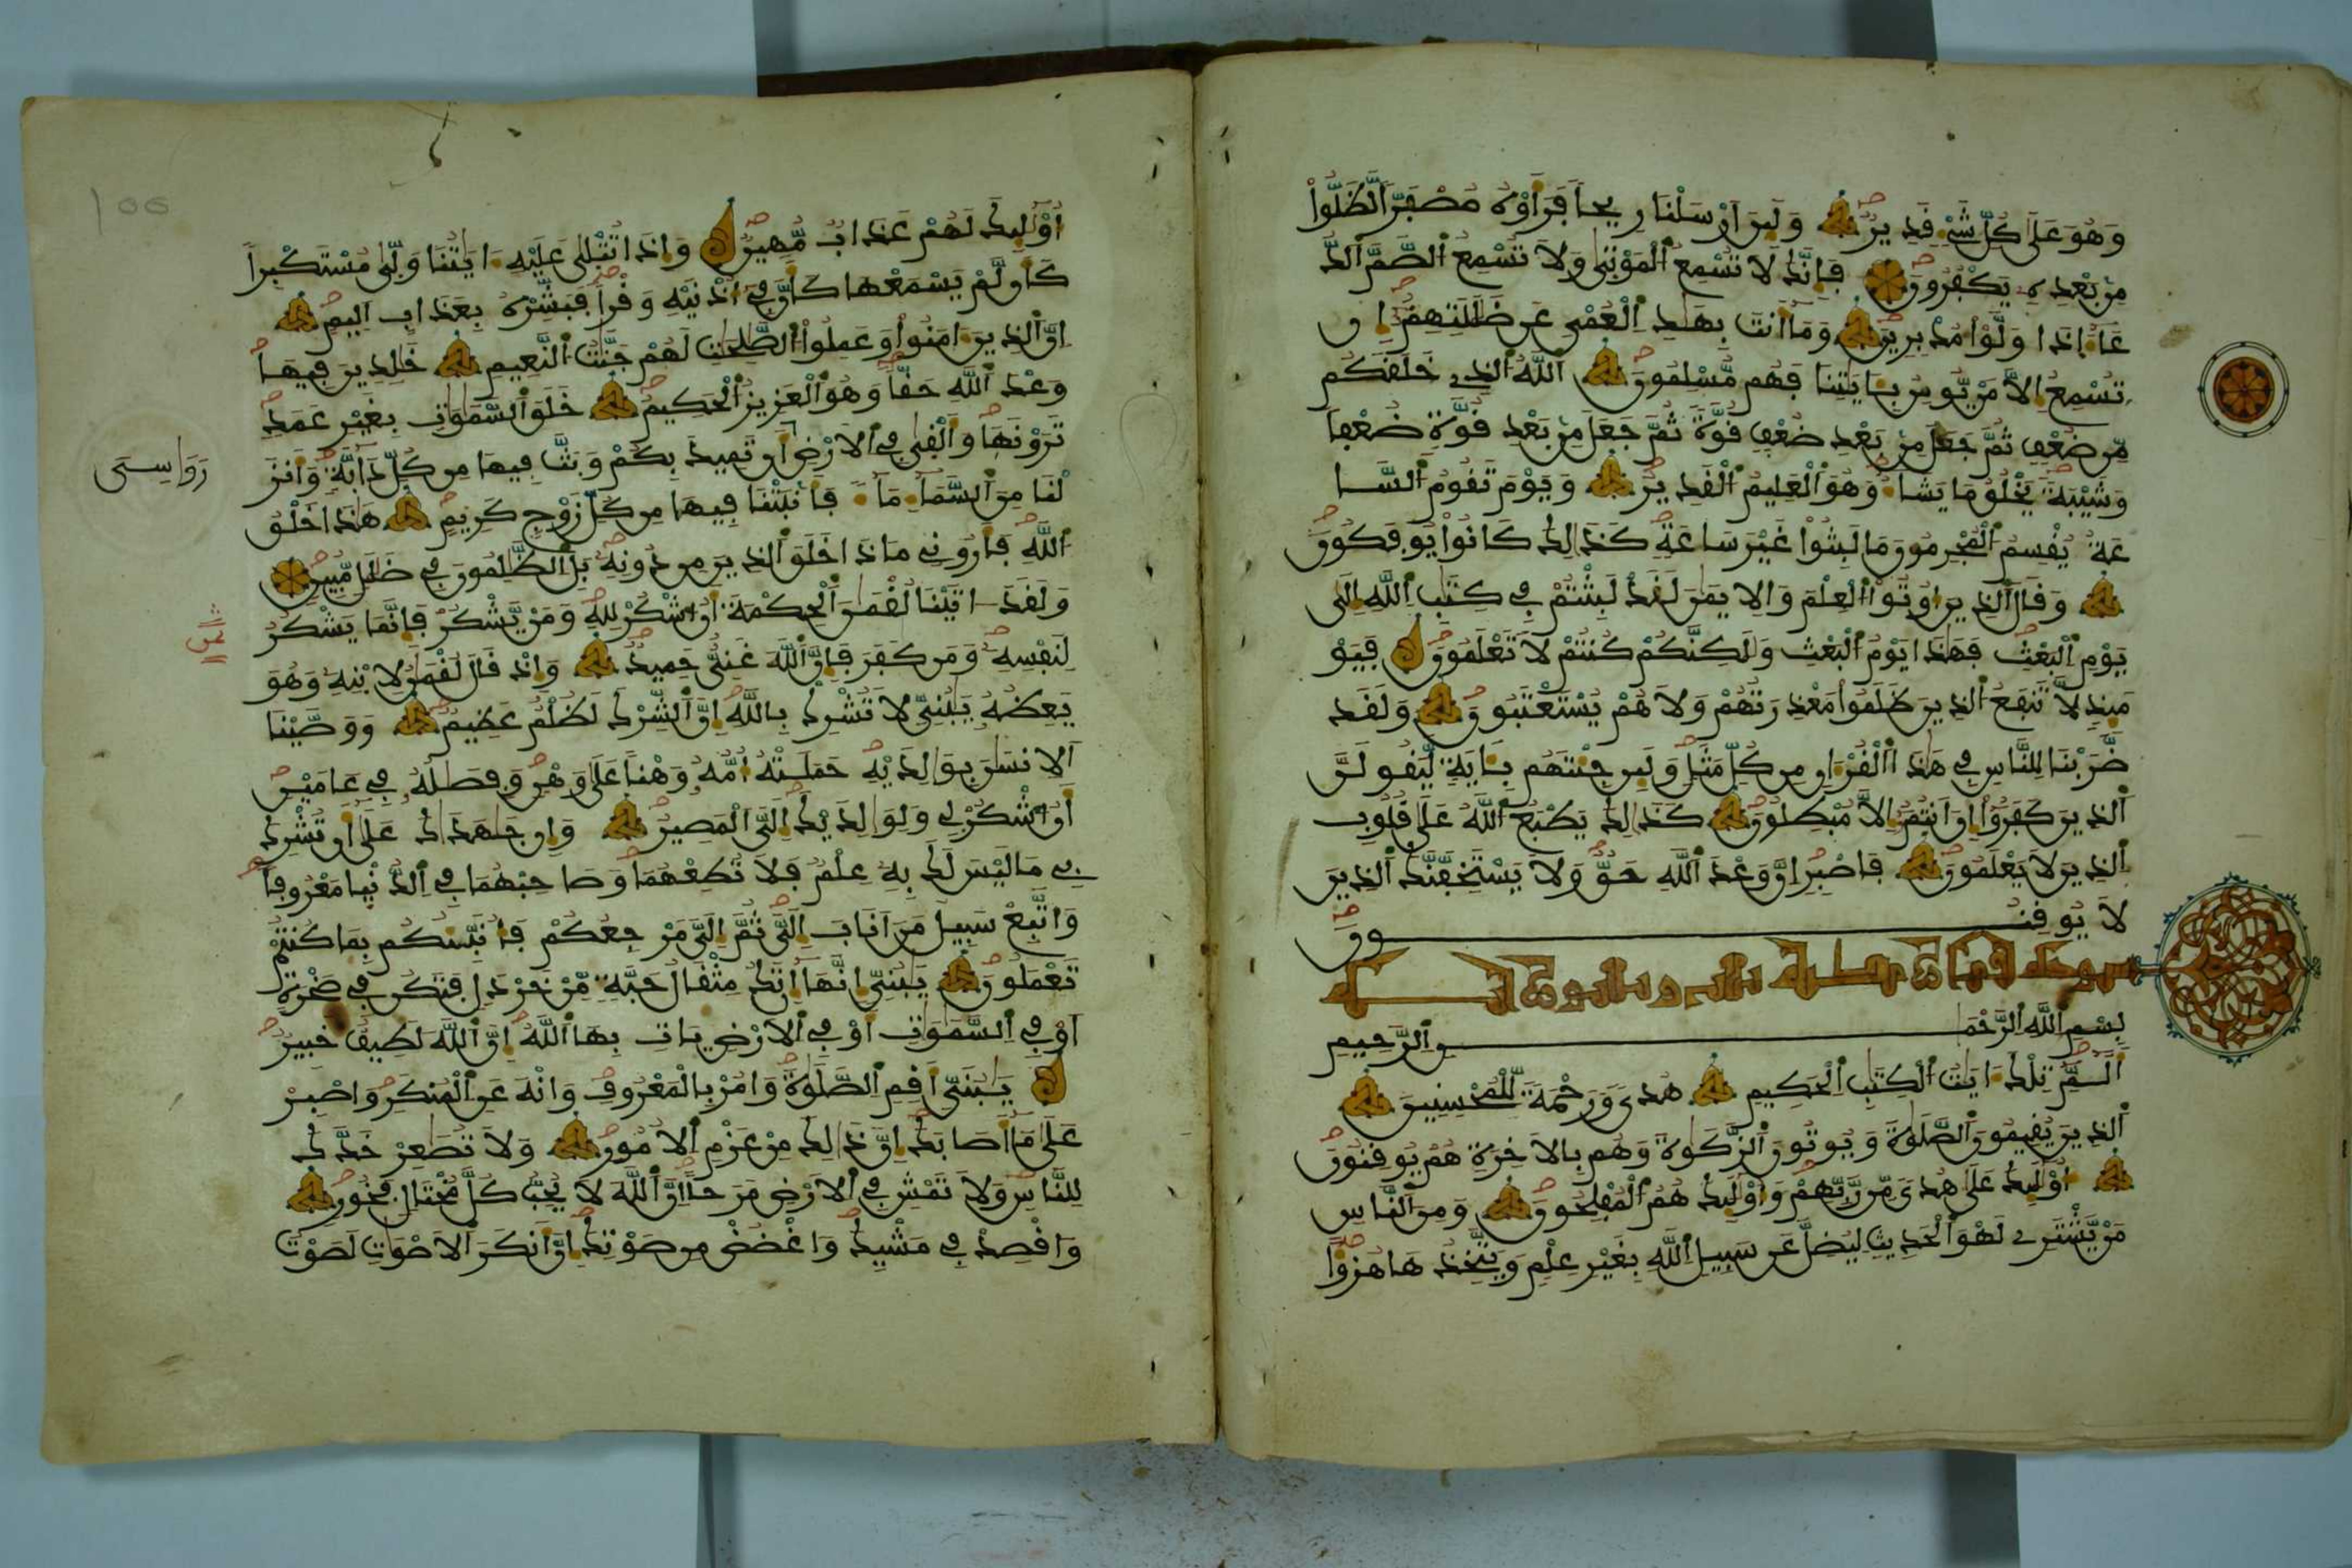 وَهُوَ عَلَىٰ كُلِّ شَيْءٍ قَدِيرٌ وَلَئِنَ اَرْسَلْنَا رِيحاً فَرَأَوْهُ مُصْفَرّاً لَّظَلُّواْ
مِنۢ بَعْدِهِۦ يَكْفُرُونَ فَإِنَّكَ لَا تُسْمِعُ اُ۬لْمَوْتَىٰ وَلَا تُسْمِعُ اُ۬لصُّمَّ اَ۬لدُّ
عَآءَ اِذَا وَلَّوْاْ مُدْبِرِينَ وَمَآ أَنتَ بِهَٰدِ اِ۬لْعُمْيِ عَن ضَلَٰلَتِهِمُۥٓ إِن
تُسْمِعُ إِلَّا مَنْ يُّومِنُ بِـَٔايَٰتِنَا فَهُم مُّسْلِمُونَ اَ۬للَّهُ اُ۬لذِے خَلَقَكُم
مِّن ضُعْفٍ ثُمَّ جَعَلَ مِنۢ بَعْدِ ضُعْفٍ قُوَّةً ثُمَّ جَعَلَ مِنۢ بَعْدِ قُوَّةٍ ضُعْفاً
وَشَيْبَةً يَخْلُقُ مَا يَشَآءُ وَهُوَ اَ۬لْعَلِيمُ اُ۬لْقَدِيرُ وَيَوْمَ تَقُومُ اُ۬لسَّا
عَةُ يُقْسِمُ اُ۬لْمُجْرِمُونَ مَا لَبِثُواْ غَيْرَ سَاعَةٍ كَذَٰلِكَ كَانُواْ يُوفَكُونَ
وَقَالَ اَ۬لذِينَ أُوتُواْ اُ۬لْعِلْمَ وَالِايمَٰنَ لَقَدْ لَبِثْتُمْ فِي كِتَٰبِ اِ۬للَّهِ إِلَىٰ
يَوْمِ اِ۬لْبَعْثِ فَهَٰذَا يَوْمُ اُ۬لْبَعْثِ وَلَٰكِنَّكُمْ كُنتُمْ لَا تَعْلَمُونَ فَيَوْ
مَئِذٍ لَّا تَنفَعُ اُ۬لذِينَ ظَلَمُواْ مَعْذِرَتُهُمْ وَلَا هُمْ يُسْتَعْتَبُونَ وَلَقَد
ضَّرَبْنَا لِلنَّاسِ فِي هَٰذَا اَ۬لْقُرْءَانِ مِن كُلِّ مَثَلٍ وَلَئِن جِئْتَهُم بِـَٔايَةٍ لَّيَقُولَنَّ
اَ۬لذِينَ كَفَرُوٓاْ إِنَ اَنتُمُۥٓ إِلَّا مُبْطِلُونَ كَذَٰلِكَ يَطْبَعُ اُ۬للَّهُ عَلَىٰ قُلُوبِ
اِ۬لذِينَ لَا يَعْلَمُونَ فَاصْبِرِ اِنَّ وَعْدَ اَ۬للَّهِ حَقٌّ وَلَا يَسْتَخِفَّنَّكَ اَ۬لذِينَ
لَا يُوقِنُونَ
بِسْمِ اِ۬للَّهِ اِ۬لرَّحْمَٰنِ اِ۬لرَّحِيمِ
أَلَٓمِّٓ تِلْكَ ءَايَٰتُ اُ۬لْكِتَٰبِ اِ۬لْحَكِيمِ هُدىً وَرَحْمَةً لِّلْمُحْسِنِينَ
اَ۬لذِينَ يُقِيمُونَ اَ۬لصَّلَوٰةَ وَيُوتُونَ اَ۬لزَّكَوٰةَ وَهُم بِالَاخِرَةِ هُمْ يُوقِنُونَ
أُوْلَٰٓئِكَ عَلَىٰ هُدىً مِّن رَّبِّهِمْ وَأُوْلَٰٓئِكَ هُمُ اُ۬لْمُفْلِحُونَ وَمِنَ اَ۬لنَّاسِ
مَنْ يَّشْتَرِے لَهْوَ اَ۬لْحَدِيثِ لِيُضِلَّ عَن سَبِيلِ اِ۬للَّهِ بِغَيْرِ عِلْمٍ وَيَتَّخِذُهَا هُزُؤاً
أُوْلَٰٓئِكَ لَهُمْ عَذَابٌ مُّهِينٌ وَإِذَا تُتْلَىٰ عَلَيْهِ ءَايَٰتُنَا وَلَّىٰ مُسْتَكْبِراً
كَأَن لَّمْ يَسْمَعْهَا كَأَنَّ فِيٓ أُذْنَيْهِ وَقْراً فَبَشِّرْهُ بِعَذَابٍ اَلِيمٍ
اِنَّ اَ۬لذِينَ ءَامَنُواْ وَعَمِلُواْ اُ۬لصَّٰلِحَٰتِ لَهُمْ جَنَّٰتُ اُ۬لنَّعِيمِ خَٰلِدِينَ فِيهَا
وَعْدَ اَ۬للَّهِ حَقّاً وَهُوَ اَ۬لْعَزِيزُ اُ۬لْحَكِيمُ خَلَقَ اَ۬لسَّمَٰوَٰتِ بِغَيْرِ عَمَدٍ
تَرَوْنَهَا وَأَلْقَىٰ فِي اِ۬لَارْضِ أَن تَمِيدَ بِكُمْ وَبَثَّ فِيهَا مِن كُلِّ دَآبَّةٍ وَأَنزَ
رَوَٰسِىَ
لْنَا مِنَ اَ۬لسَّمَآءِ مَآءً فَأَنۢبَتْنَا فِيهَا مِن كُلِّ زَوْجٍ كَرِيمٍ هَٰذَا خَلْقُ
اُ۬للَّهِ فَأَرُونِي مَاذَا خَلَقَ اَ۬لذِينَ مِن دُونِهِۦ بَلِ اِ۬لظَّٰلِمُونَ فِي ضَلَٰلٍ مُّبِينٍ
وَلَقَدَ اٰتَيْنَا لُقْمَٰنَ اَ۬لْحِكْمَةَ أَنُ اُ۟شْكُرْ لِلهِ وَمَنْ يَّشْكُرْ فَإِنَّمَا يَشْكُرُ
لِنَفْسِهِۦ وَمَن كَفَرَ فَإِنَّ اَ۬للَّهَ غَنِيٌّ حَمِيدٌ وَإِذْ قَالَ لُقْمَٰنُ لِابْنِهِۦ وَهُوَ
يَعِظُهُۥ يَٰبُنَيِّ لَا تُشْرِكْ بِاللَّهِ إِنَّ اَ۬لشِّرْكَ لَظُلْمٌ عَظِيمٌ وَوَصَّيْنَا
اَ۬لِانسَٰنَ بِوَٰلِدَيْهِ حَمَلَتْهُ أُمُّهُۥ وَهْناً عَلَىٰ وَهْنٍ وَفِصَٰلُهُۥ فِي عَامَيْنِ
أَنُ اُ۟شْكُرْ لِي وَلِوَٰلِدَيْكَ إِلَيَّ اَ۬لْمَصِيرُ وَإِن جَٰهَدَٰكَ عَلَىٰٓ أَن تُشْرِكَ
بِي مَا لَيْسَ لَكَ بِهِۦ عِلْمٌ فَلَا تُطِعْهُمَا وَصَاحِبْهُمَا فِي اِ۬لدُّنْيَا مَعْرُوفاً
وَاتَّبِعْ سَبِيلَ مَنَ اَنَابَ إِلَيَّ ثُمَّ إِلَيَّ مَرْجِعُكُمْ فَأُنَبِّئُكُم بِمَا كُنتُمْ
تَعْمَلُونَ يَٰبُنَيِّ إِنَّهَآ إِن تَكُ مِثْقَالُ حَبَّةٍ مِّنْ خَرْدَلٍ فَتَكُن فِي صَخْرَةٍ
اَوْ فِي اِ۬لسَّمَٰوَٰتِ أَوْ فِي اِ۬لَارْضِ يَاتِ بِهَا اَ۬للَّهُ إِنَّ اَ۬للَّهَ لَطِيفٌ خَبِيرٌ
يَٰبُنَيِّ أَقِمِ اِ۬لصَّلَوٰةَ وَامُرْ بِالْمَعْرُوفِ وَانْهَ عَنِ اِ۬لْمُنكَرِ وَاصْبِرْ
عَلَىٰ مَآ أَصَابَكَ إِنَّ ذَٰلِكَ مِنْ عَزْمِ اِ۬لُامُورِ وَلَا تُصَٰعِرْ خَدَّكَ
لِلنَّاسِ وَلَا تَمْشِ فِي اِ۬لَارْضِ مَرَحاً إِنَّ اَ۬للَّهَ لَا يُحِبُّ كُلَّ مُخْتَالٍ فَخُورٍ
وَاقْصِدْ فِي مَشْيِكَ وَاغْضُضْ مِن صَوْتِكَ إِنَّ أَنكَرَ اَ۬لَاصْوَٰتِ لَصَوْتُ